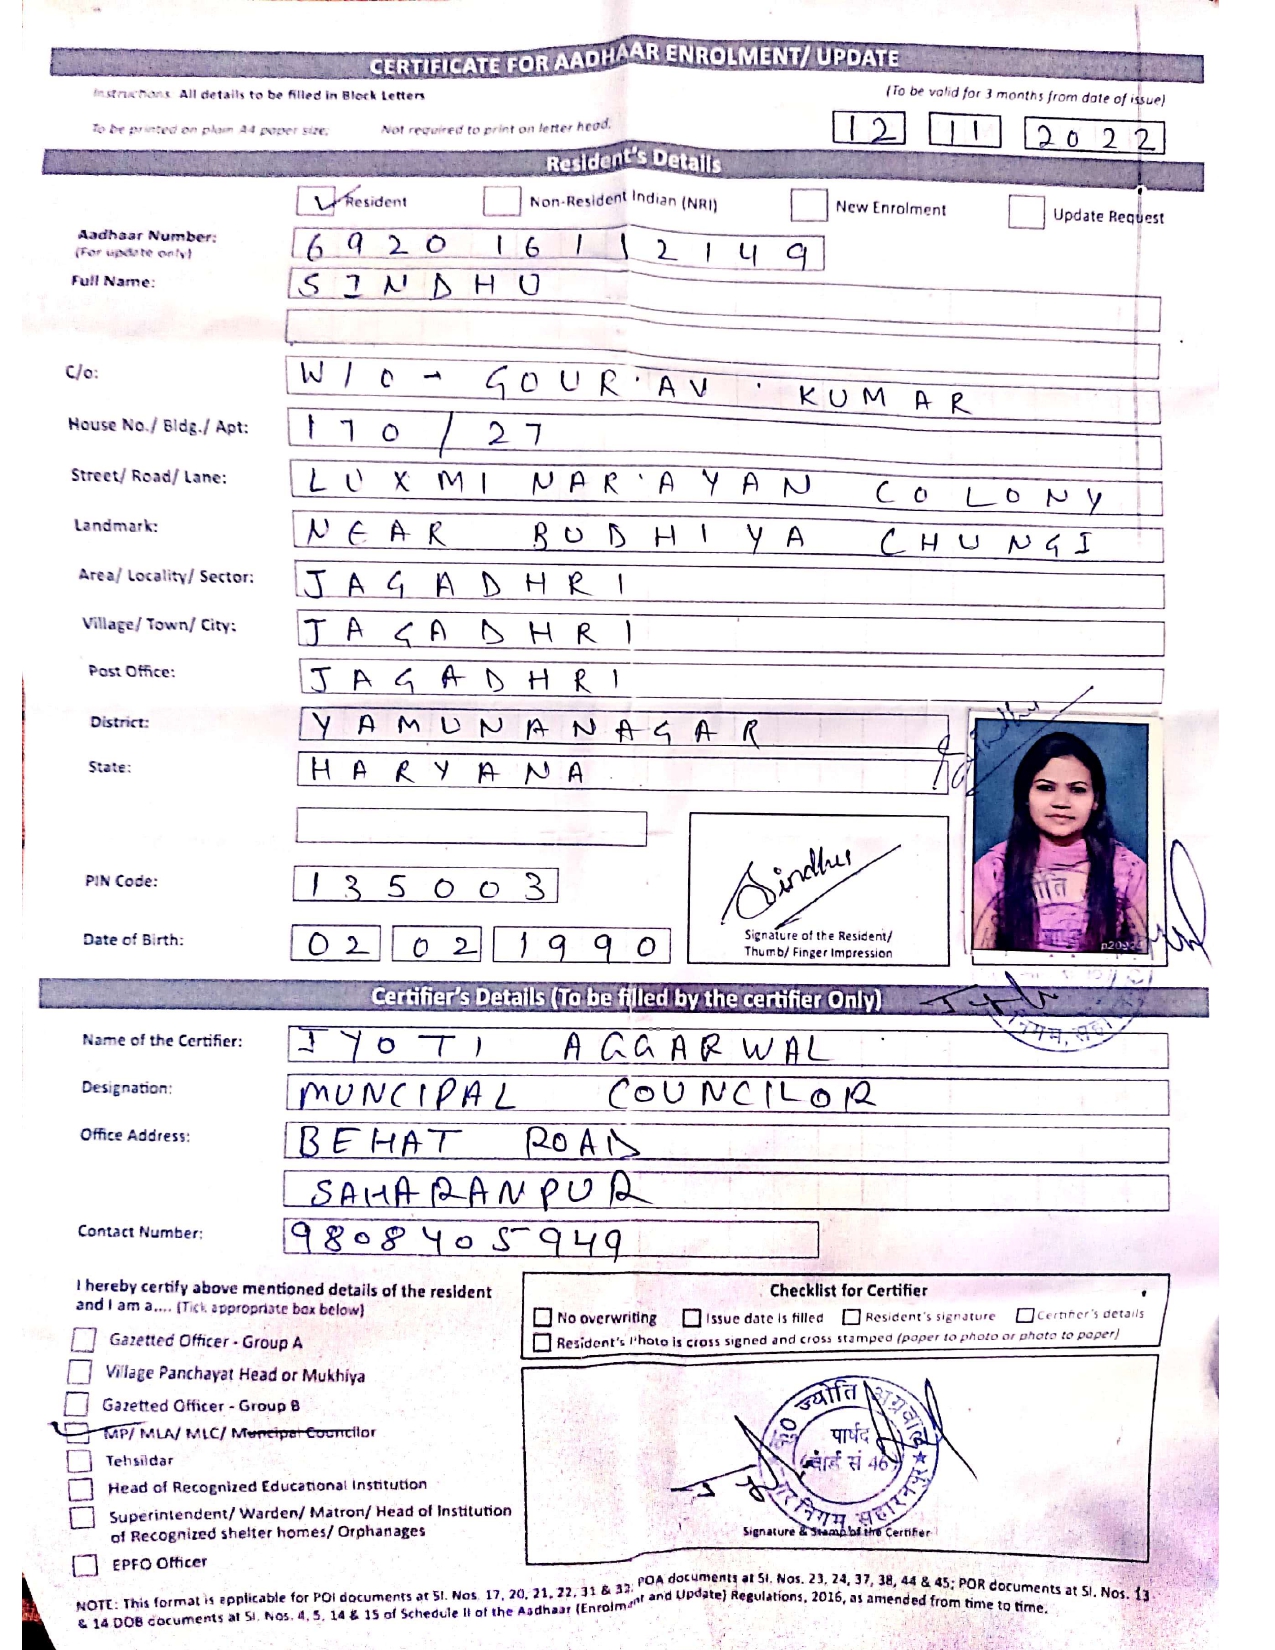 CERTIFICATE FOR AADHAAR ENROLMENT/ UPDATE
Instructions: All details to be filled in Block Letters
(To be valid for 3 months from date of issue)
To be printed on plain A4 paper size; Not required to print on letter head.
12 11 2022
Resident's Details
Resident Non-Resident Indian (NRI) New Enrolment Update Request
Aadhaar Number: 6920 1611 2149
(For update only)
Full Name: SINDHU
C/o: W/O - GOUR.AV. KUMAR
House No./ Bldg./ Apt: 170/27
Street/ Road/ Lane: LUXMI NAR.AYAN COLONY
Landmark: NEAR BUDHIYA CHUNGI
Area/ Locality/ Sector: JAGADHRI
Village/ Town/ City: JAGADHRI
Post Office: JAGADHRI
District: YAMUNANAGAR
State: HARYANA
Sindhu
PIN Code: 135003
Sindhu
Date of Birth: 02 02 1990
Signature of the Resident/
Thumb/ Finger Impression
Certifier's Details (To be filled by the certifier Only)
Name of the Certifier: JYOTI AGGARWAL
Designation: MUNCIPAL COUNCILOR
Office Address: BEHAT ROAD
SAHARANPUR
Contact Number: 9808405949
I hereby certify above mentioned details of the resident
and I am a.... (Tick appropriate box below)
Gazetted Officer - Group A
Village Panchayat Head or Mukhiya
Gazetted Officer - Group B
MP/ MLA/ MLC/ Muncipal Councilor
Tehsildar
Head of Recognized Educational Institution
Superintendent/ Warden/ Matron/ Head of Institution
of Recognized shelter homes/ Orphanages
EPFO Officer
Checklist for Certifier
No overwriting Issue date is filled Resident's signature Certifier's details
Resident's Photo is cross signed and cross stamped (paper to photo or photo to paper)
ज्योति अग्रवाल
पार्षद
वार्ड सं 46
नगर निगम सहारनपुर
Signature & Stamp of the Certifier
NOTE: This format is applicable for POI documents at Sl. Nos. 17, 20, 21, 22, 31 & 32; POA documents at Sl. Nos. 23, 24, 37, 38, 44 & 45; POR documents at Sl. Nos. 13
& 14 DOB documents at Sl. Nos. 4, 5, 14 & 15 of Schedule II of the Aadhaar (Enrolment and Update) Regulations, 2016, as amended from time to time.